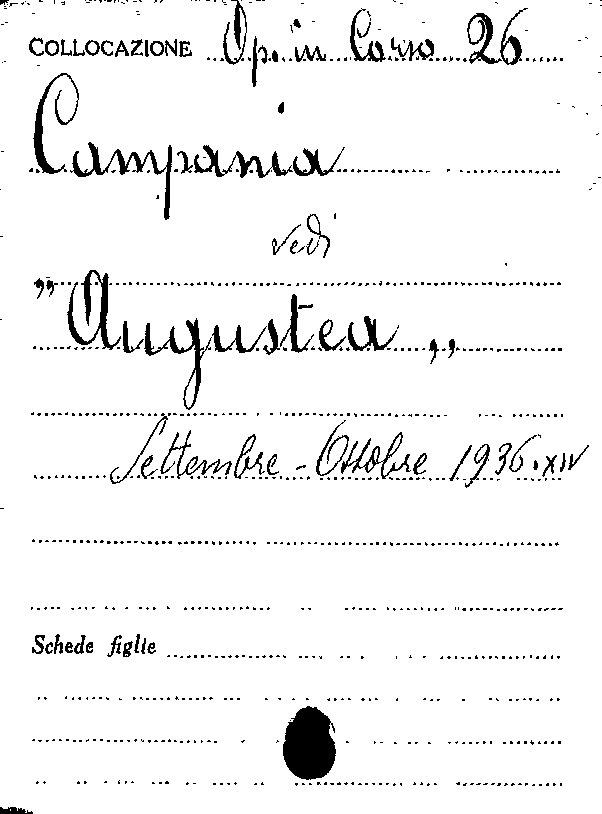 COLLOCAZIONE Op. in Corso 26
Campania
vedi
"Augustea„
Settembre - Ottobre 1936.XIV
Schede figlie